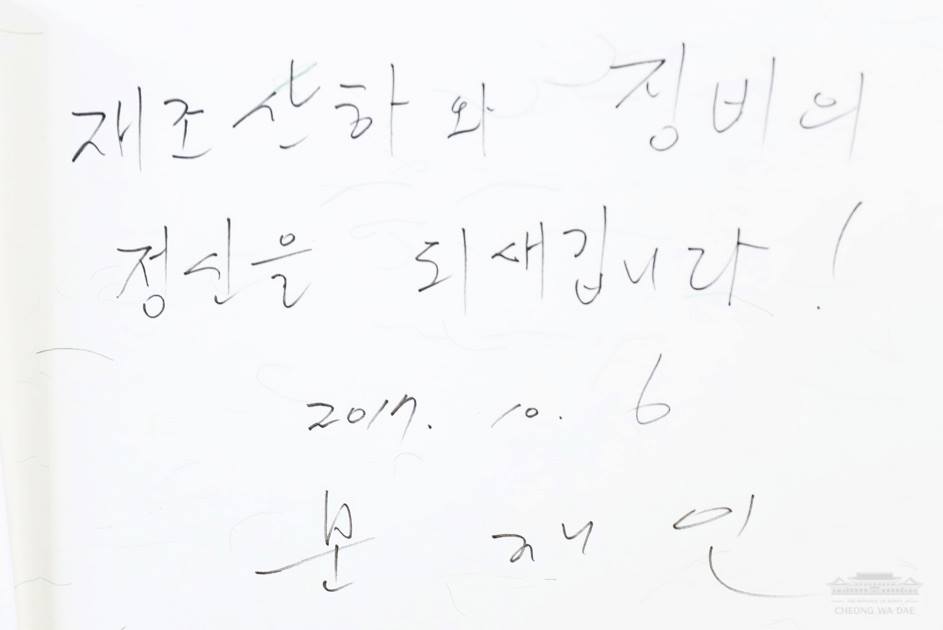 재조산하와 징비의
정신을 되새깁니다!
2017. 10. 6
문재인
CHEONG WA DAE